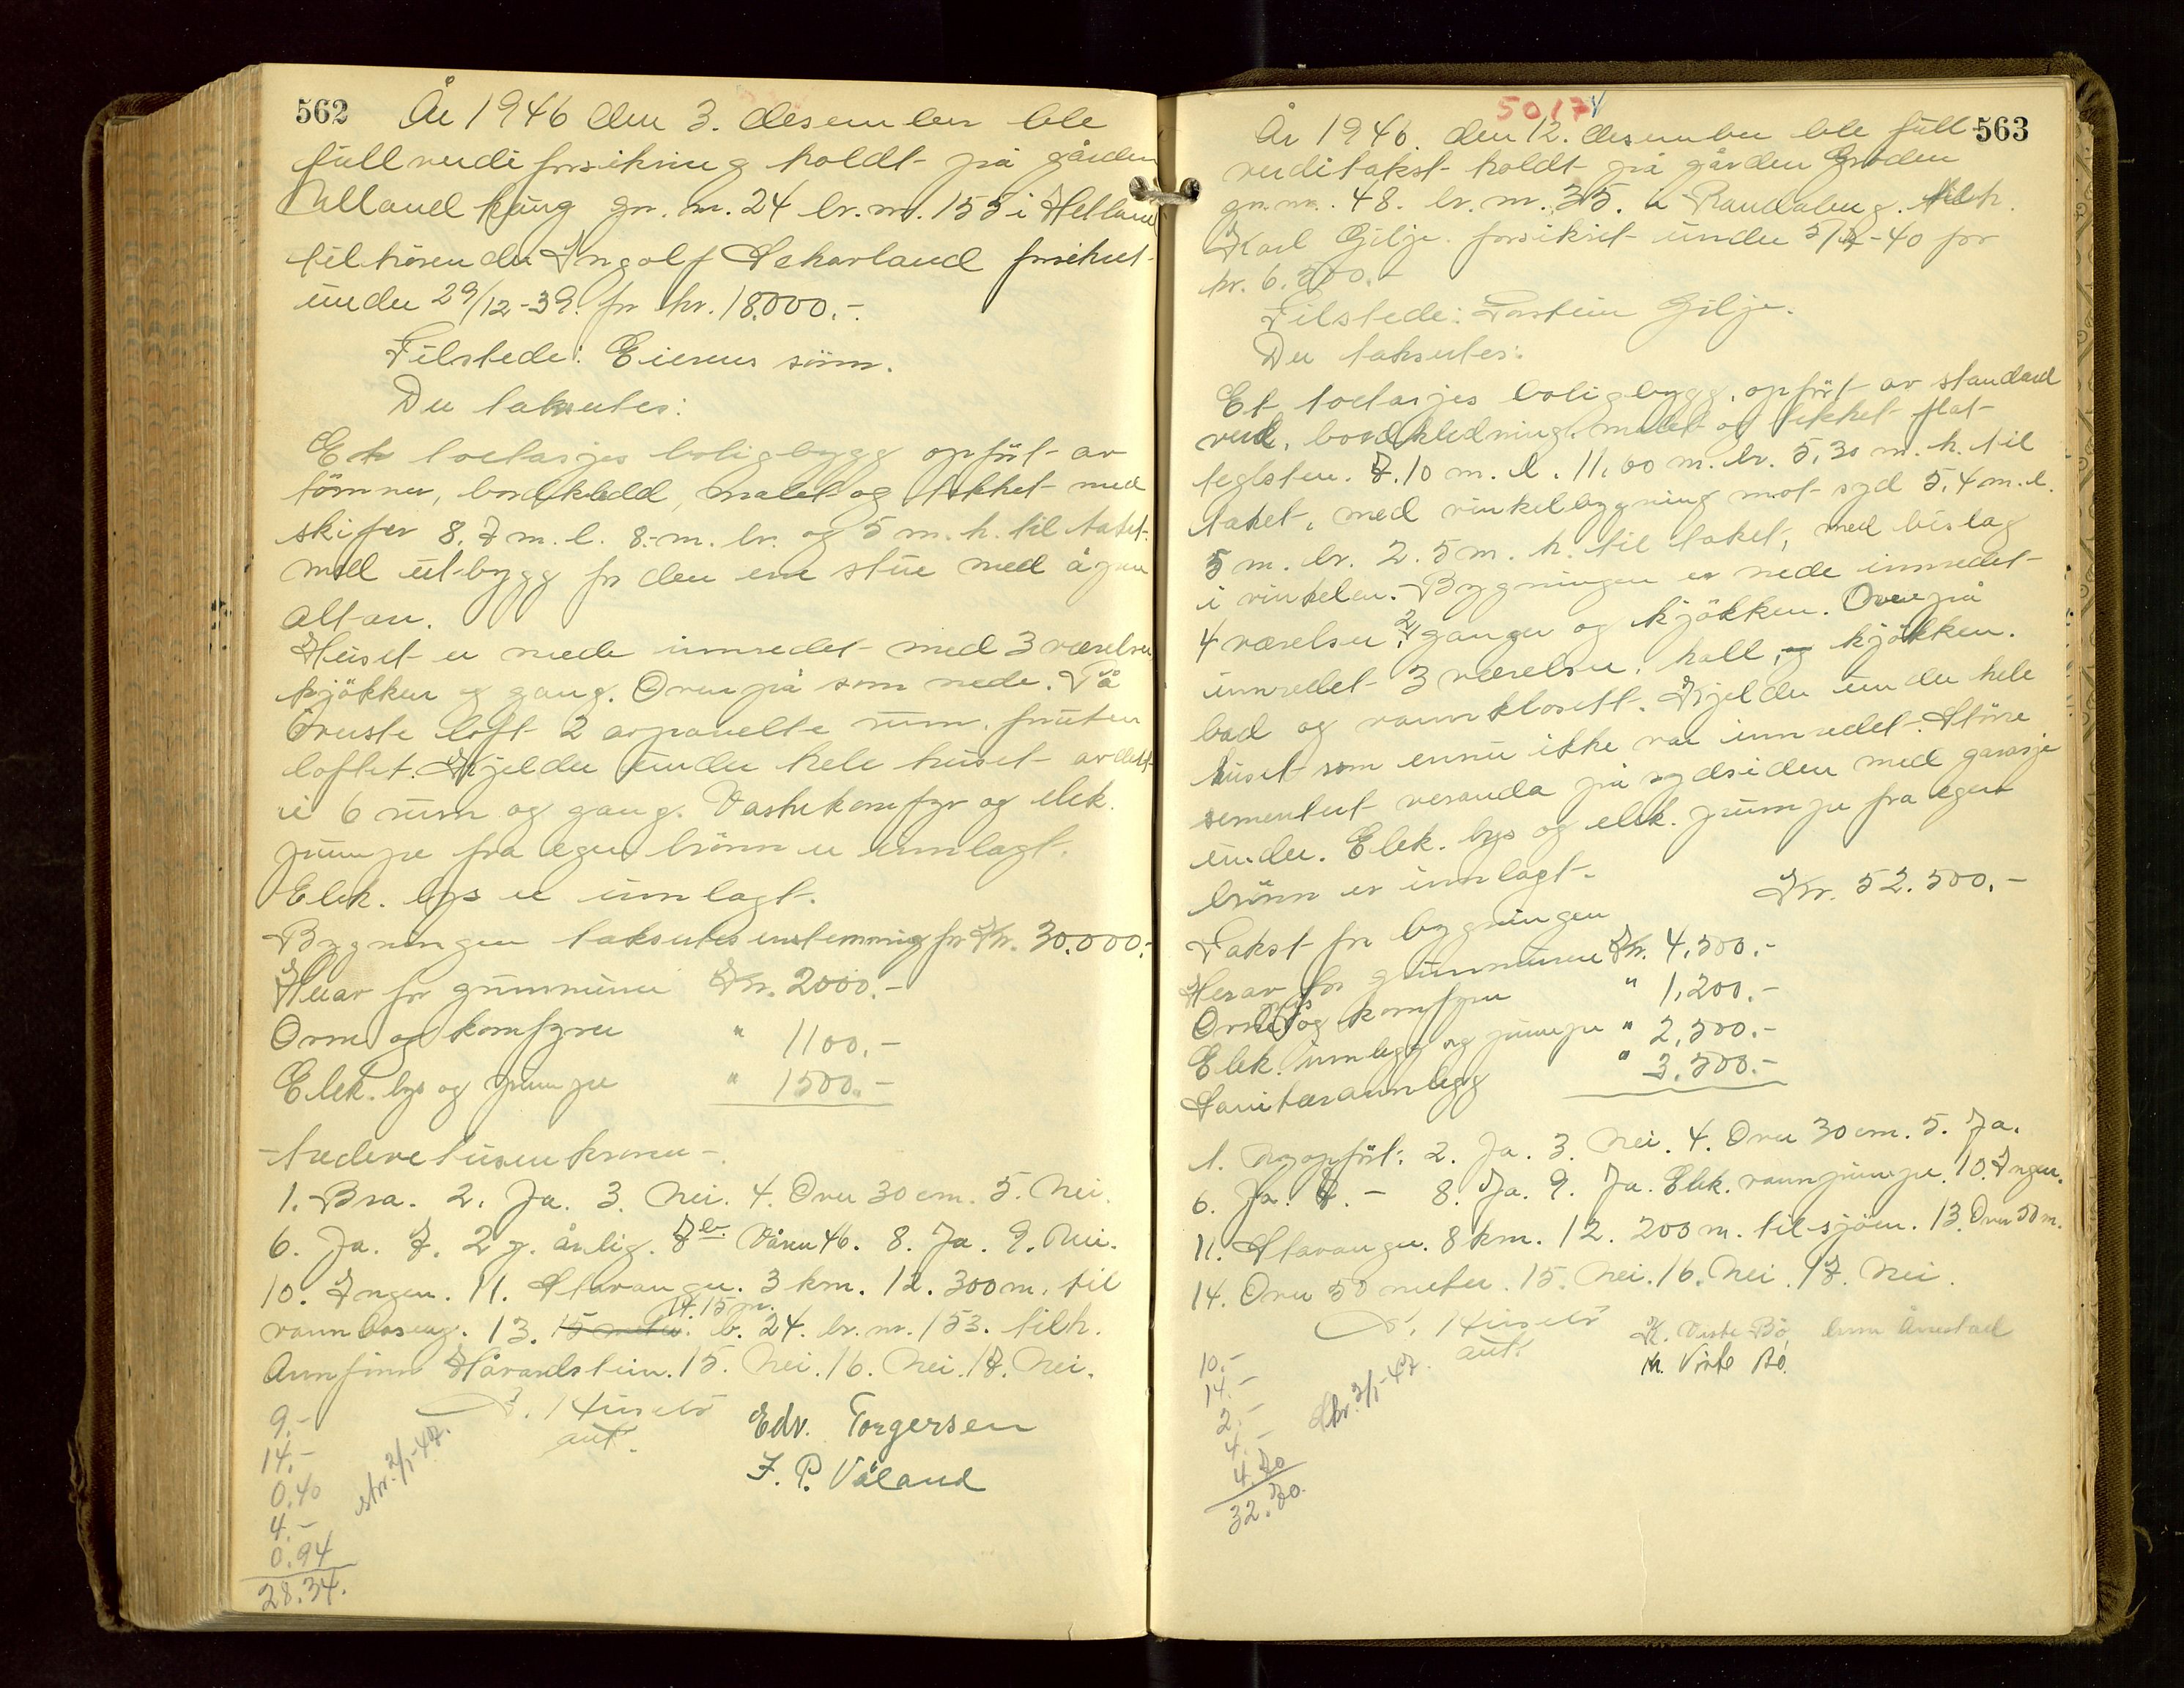 562
År 1946 den 3. desember ble
fullverdiforsikring holdt på gården
Ullandhaug gr. nr. 24 br. nr. 155 i Hetland
tilhørende Ingolf Skharland forsikret
under 29/12-39. for kr. 18.000.-
Tilstede: Eierens sønn.
Der taksertes:
Et toetasjes boligbygg opført av
tømmer, bordkledd, malet og tekket med
skifer 8.7 m. l. 8.- m. br. og 5 m. h. til taket.
med utbygg for den ene stue med åpen
altan.
Huset er nede innredet med 3 værelser,
kjøkken og gang. Oven på som nede. På
øverste loft 2 avpanelte rum. foruten
loftet. Kjelder under hele huset avdelt
i 6 rum og gang. Vaskekomfyr og elek.
pumpe fra egen brønn er innlagt.
Elek. lys er innlagt.
Bygningen takseres enstemmig for Kr. 30.000.-
Herav for grunnmur Kr. 2000.-
Ovne og komfyrer " 1100.-
Elek. lys og pumpe " 1500.-
- tredive tusen kroner -
1. Bra. 2. Ja. 3. Nei. 4. Over 30 cm. 5. Nei.
6. Ja. 7. 2 g. årlig. 7b. Våren 46. 8. Ja. 9. Nei.
10. Ingen. 11. Stavanger. 3 km. 12. 300 m. til
14. 15 m.
vannbaseng. 13. 15 meter. b. 24. br. nr. 153. tilh.
Arnfinn Håvardstein. 15. Nei. 16. Nei. 17. Nei.
Edv. Torgersen
aut.
J. P. Våland
9.-
14.-
0.40
4.-
0.94
28.34.
skr. 2/1-47.
50174
563
År 1946. den 12. desember ble full-
verditakst holdt på gården Grøden
gr. nr. 48. br. nr. 35. i Randaberg. tilh.
Karl Gilje. forsikret under 5/7-40 for
kr. 6.300.-
Tilstede: Torstein Gilje.
Der takseres:
Et toetasjes boligbygg, opført av standard
verk, bordkledning. malet og tekket flat-
teglsten. 7.10 m. l. 11.60 m. br. 5.30 m. h. til
taket, med vinkelbygning mot syd 5.4 m. l.
5 m. br. 2.5 m. h. til taket, med bislag
i vinkelen. Bygningen er nede innredet
4 værelser, 2 ganger og kjøkken. Oven på
innredet 3 værelser, hall, og kjøkken.
bad og vannklosett. Kjelder under hele
huset som ennu ikke var innredet. Større
sementert veranda på sydsiden med garasje
under. Elek. lys og elek. pumpe fra egen
brønn er innlagt.
Takst for bygningen Kr. 52.500.-
Herav for grunnmuren Kr. 4.500.-
Ovne og komfyrer " 1.200.-
Elek. lys innlegg og pumpe " 2.500.-
Sanitæranlegg " 3.500.-
1. Nyopført. 2. Ja. 3. Nei. 4. Over 30 cm. 5. Ja.
6. Ja. 7. - 8. Ja. 9. Ja. Elek. vannpumpe. 10. Ingen.
11. Stavanger. 8 km. 12. 200 m. til sjøen. 13. Over 50 m.
14. Over 50 meter. 15. Nei. 16. Nei. 17. Nei.
aut.
K. Viste Bø
K. Viste Bø.
10.-
14.-
2.-
4.-
4.70
32.70.
skr. 2/1-47.